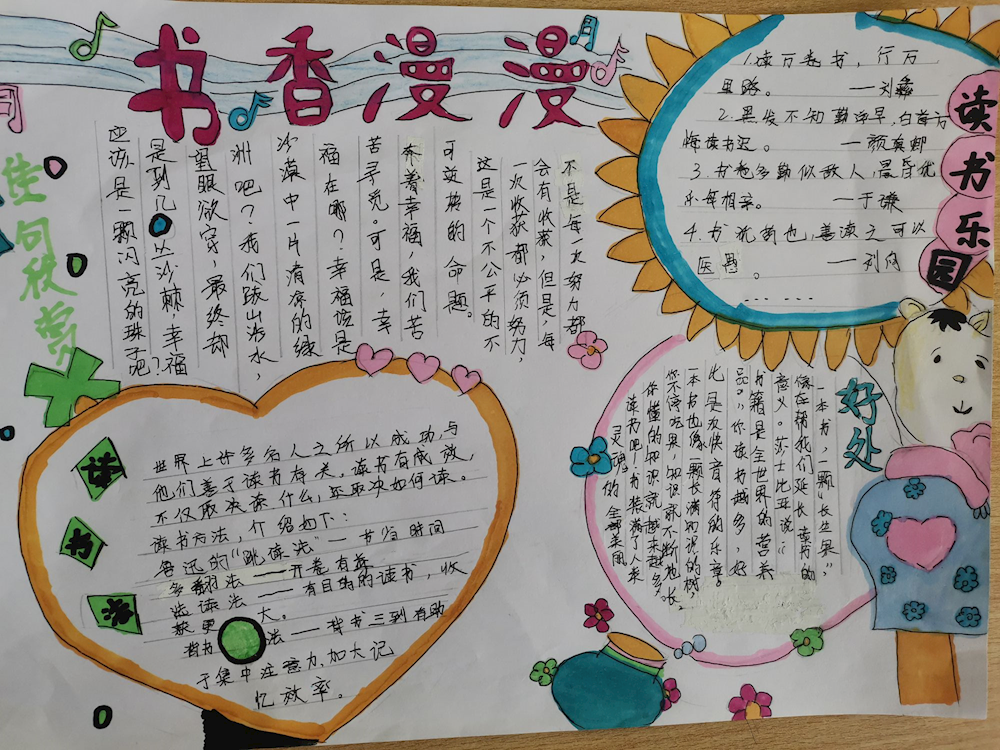 书香漫漫
佳句欣赏
不是每一次努力都
会有收获,但是,每
一次收获都必须努力,
这是一个不公平的不
可逆转的命题。
奔着幸福,我们苦
苦寻觅。可是,幸
福在哪?幸福该是
沙漠中一片清凉的绿
洲吧?我们跋山涉水,
望眼欲穿,最终却
是到几 丛沙棘,幸福
应该是一颗闪亮的珠子吧?
读书乐园
1.读万卷书,行万
里路。 —刘彝
2.黑发不知勤学早,白首方
悔读书迟。 —颜真卿
3.书卷多勤似故人,晨昏忧
乐每相亲。 —于谦
4.书犹药也,善读之可以
医愚。 —刘向
读书法
世界上许多名人之所以成功,与
他们善于读书有关,读书有成效,
不仅取决读什么,还取决如何读。
读书方法,介绍如下:
鲁迅的“跳读法”—书当时间
多翻法——开卷有益
选读法——有目的的读书,收
获更 大。
背书 法——背书三到有助
于集中注意力,加大记
忆效率。
好处
一本书,一颗“长生果”,
像在帮我们延长读书的
意义。莎士比亚说:“
书籍是全世界的营养
品。”你读书越多,好
比是欢快音符的乐章。
一本书也像一颗长满知识的树,
你不停吃果,知识就不断地长,
你懂的知识就越来越多。
读书吧!书装满了人类
灵魂的全部美丽